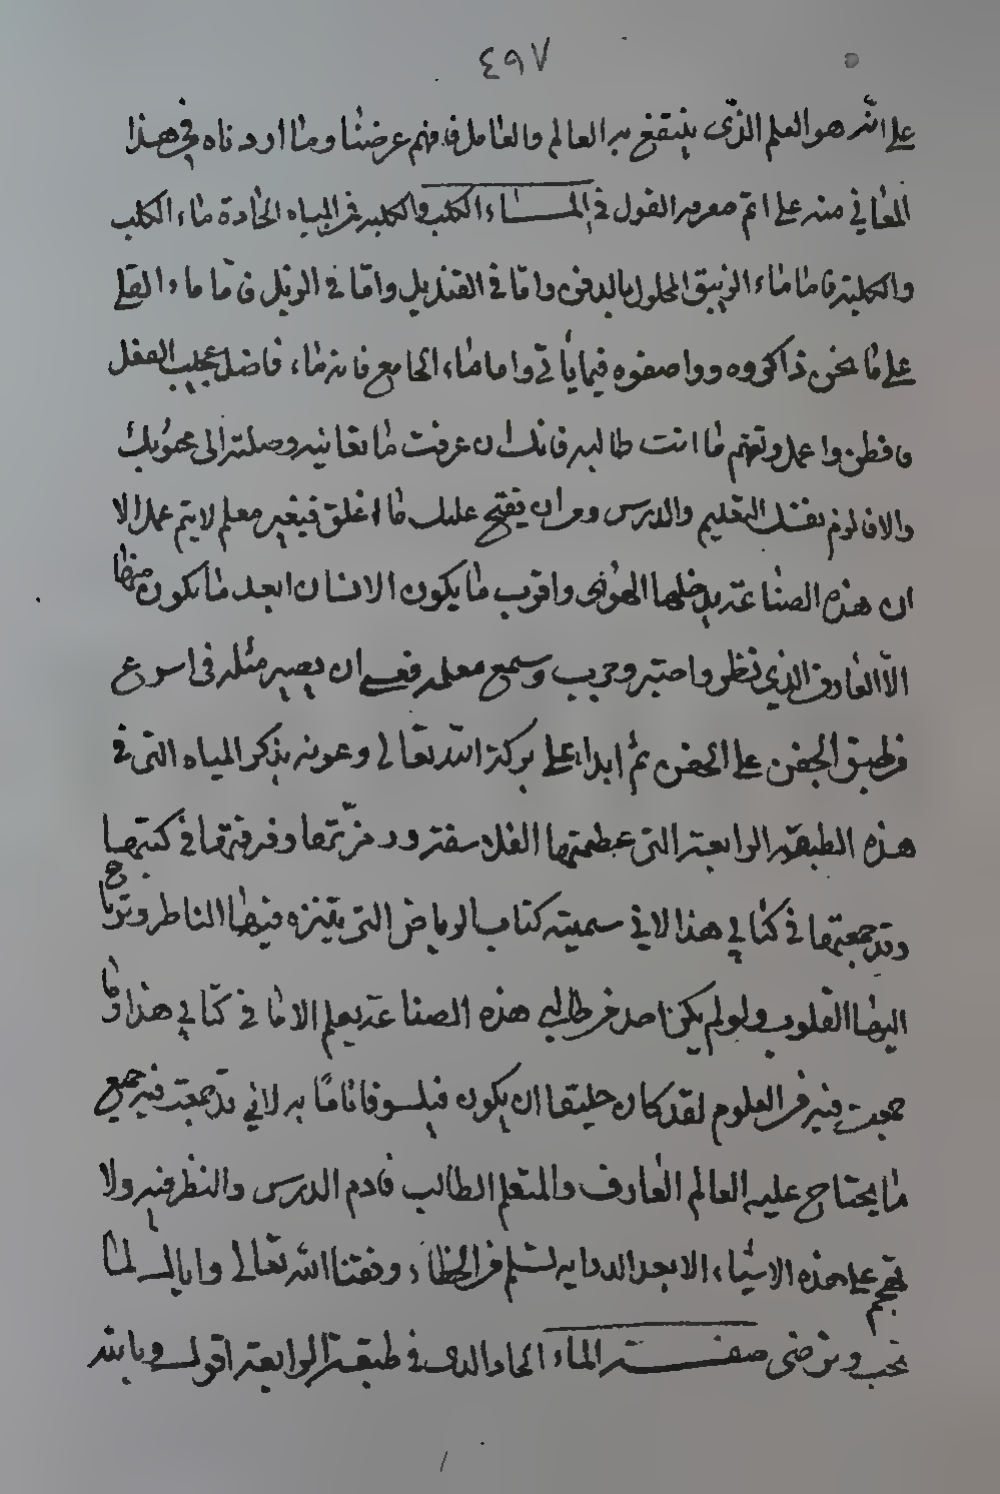 ٤٩٧
على انه هو العلم الذى ينتفع به العالم والعامل فافهم غرضنا وما اردناه في هذا
المعاني منه على اتم معرفه القول في الماء الكلب والكلبه من المياه الحادة ماء الكلب
والكلبة فاما ماء الزيبق المحلول بالدفن واما في القنديل واما في الزبل فاما ماء القلى
على ما نحن ذاكروه وواصفوه فيما ياتي واما ماء الجامع فانه ماء فاضل عجيب الفعل
فافطن واعمل وتفهم ما انت طالبه فانك ان عرفت ما تعانيه وصلت الى محبوبك
والا فالزم نفسك التعليم والدرس وان يفتح عليك ما اغلق فبغير معلم لا يتم عمل الا
ان هذه الصناعة يدخلها الهوى واقرب ما يكون الانسان ابعد ما يكون منها
الا العارف الذي نظر واختبر وجرب وسمع معلمه فعسى ان يصير مثله في اسرع
من طبق الجفن على الجفن ثم ابدا على بركة الله تعالى وعونه بذكر المياه التى في
هذه الطبقة الرابعة التى عظمتها الفلاسفة ورمزتها وفرقتها في كتبها
وقد جمعتها في كتابي هذا لاني سميته كتاب الرياض التى يتنزه فيها الناظر وترتاح
اليها القلوب ولو لم يكن احد من طالبي هذه الصناعة يعلم الا ما في كتابي هذا وما
جمعت فيه من العلوم لقد كان خليقا ان يكون فيلسوفا تاما به لاني قد جمعت فيه جميع
ما يحتاج عليه العالم العارف والمتعلم الطالب فادم الدرس والنظر فيه ولا
تهجم على هذه الاشياء الا بعد الدراية لتسلم من الخطاء وفقنا الله تعالى واياك لما
نحب ونرضى صفة الماء الحاد الذى في طبقة الرابعة اقول وبالله